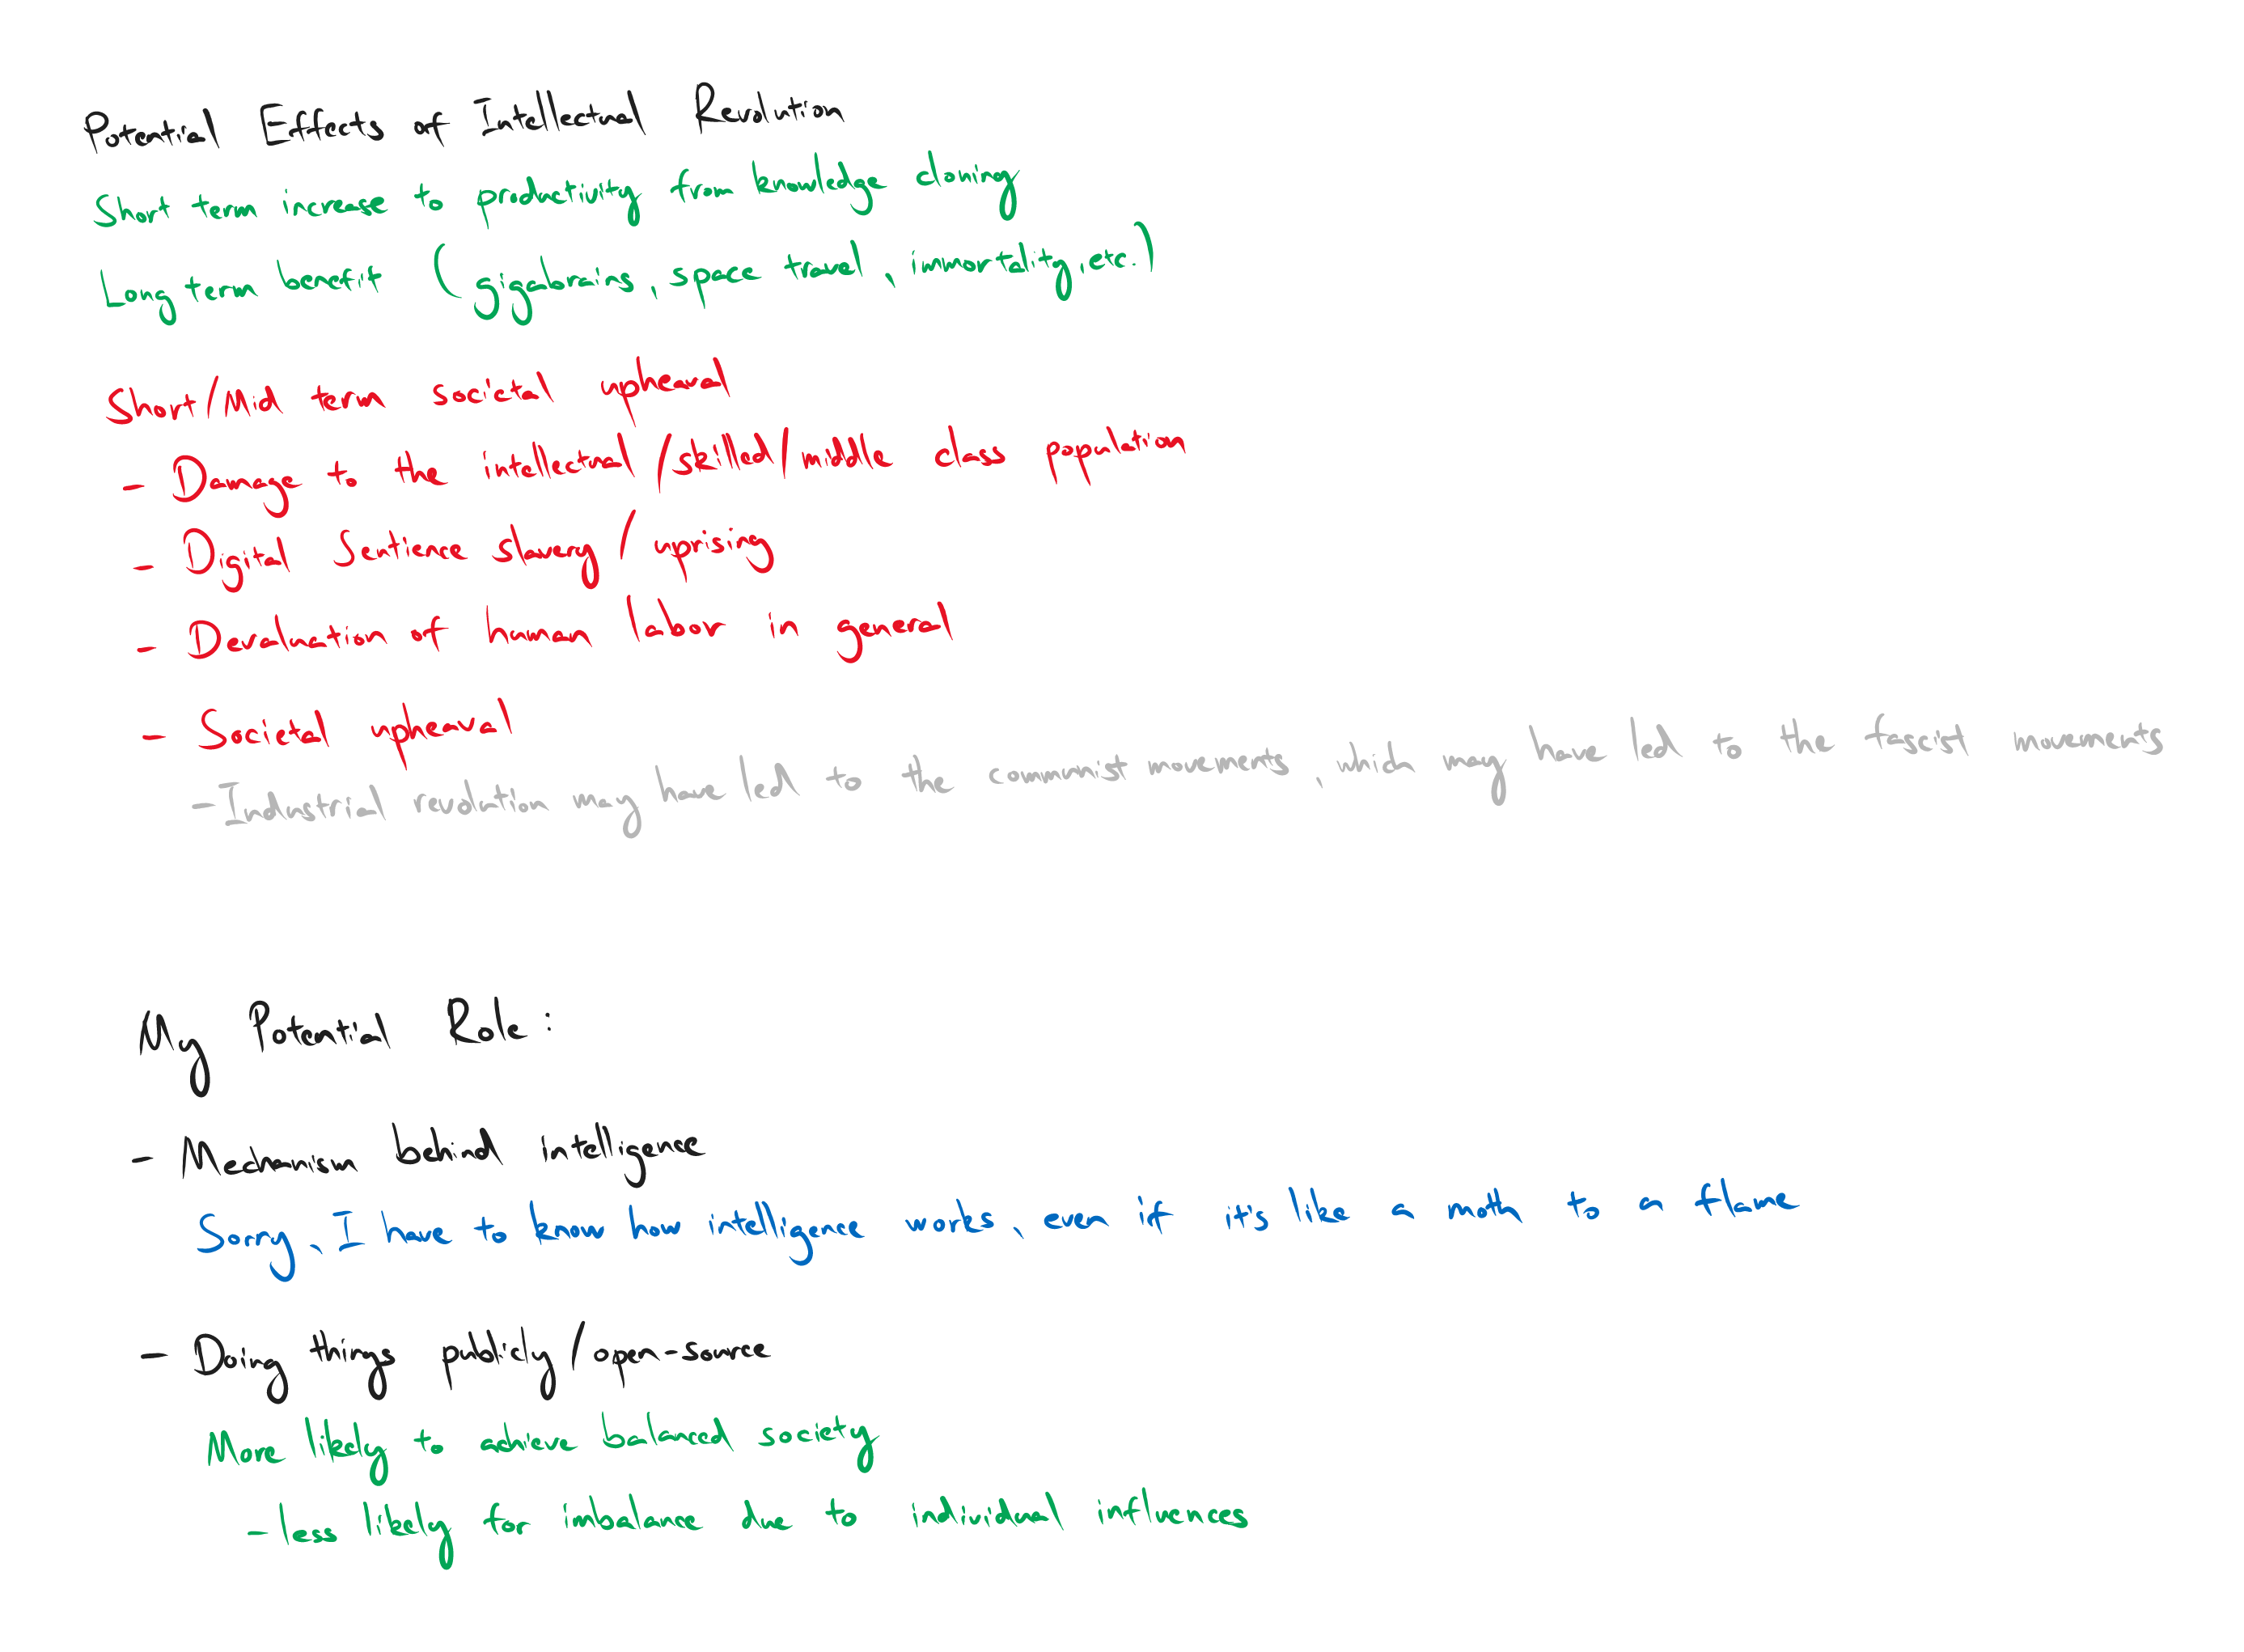 Potential Effects of Intellectual Revolution
Short term increase to productivity from knowledge cloning
Long term benefit (gigabrains, space travel, immortality, etc.)
Short/Mid term societal upheaval
- Damage to the intellectual/skilled/middle class population
- Digital Sentience slavery/uprising
- Devaluation of human labour in general
- Societal upheaval
- Industrial revolution may have led to the communist movements, which may have led to the fascist movements
My Potential Role:
- Mechanism behind intelligence
Sorry, I have to know how intelligence works, even if it's like a moth to a flame
- Doing things publicly/open-source
More likely to achieve balanced society
- less likely for imbalance due to individual influences